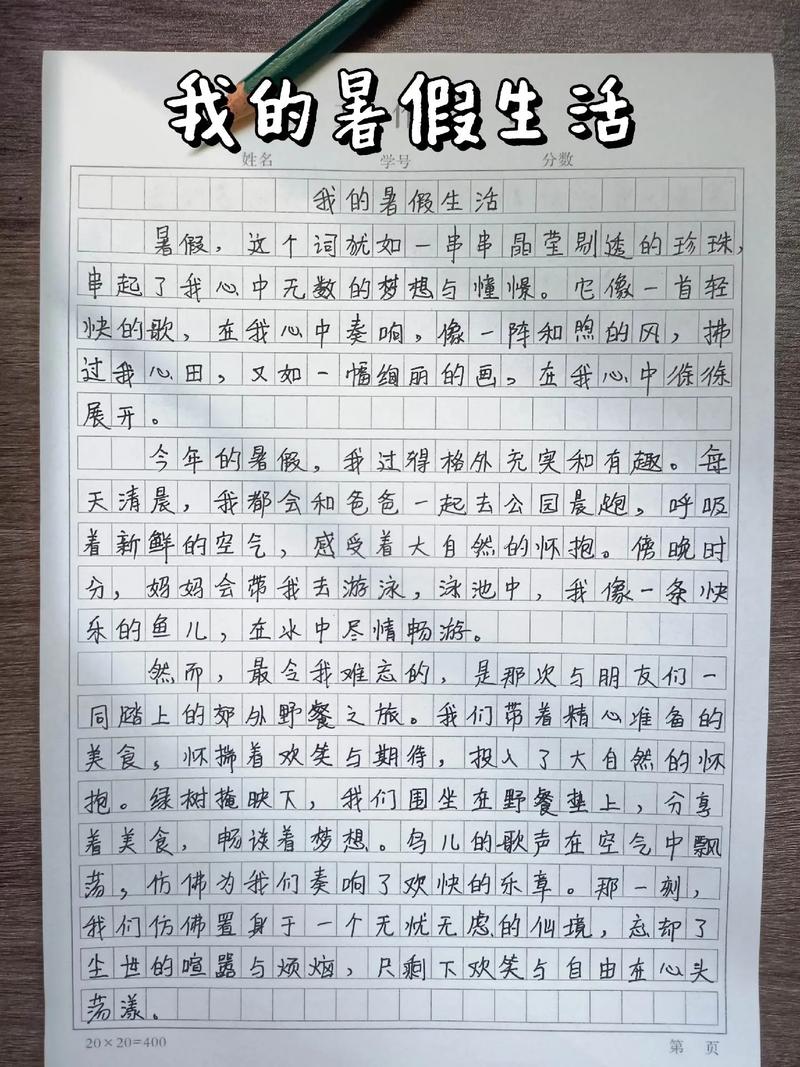 我的暑假生活
姓名 学号 分数
我的暑假生活
暑假，这个词犹如一串串晶莹剔透的珍珠，
串起了我心中无数的梦想与憧憬。它像一首轻
快的歌，在我心中奏响，像一阵和煦的风，拂
过我心田，又如一幅绚丽的画，在我心中徐徐
展开。
今年的暑假，我过得格外充实和有趣。每
天清晨，我都会和爸爸一起去公园晨跑，呼吸
着新鲜的空气，感受着大自然的怀抱。傍晚时
分，妈妈会带我去游泳，泳池中，我像一条快
乐的鱼儿，在水中尽情畅游。
然而，最令我难忘的，是那次与朋友们一
同踏上的郊外野餐之旅。我们带着精心准备的
美食，怀揣着欢笑与期待，投入了大自然的怀
抱。绿树掩映下，我们围坐在野餐垫上，分享
着美食，畅谈着梦想。鸟儿的歌声在空气中飘
荡，仿佛为我们奏响了欢快的乐章。那一刻，
我们仿佛置身于一个无忧无虑的仙境，忘却了
尘世的喧嚣与烦恼，只剩下欢笑与自由在心头
荡漾。
20×20=400 第 页